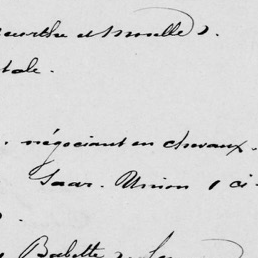 Meurthe et Moselle).
tale.
, négociant en chevaux.
Saar-Union, ci-
Babette